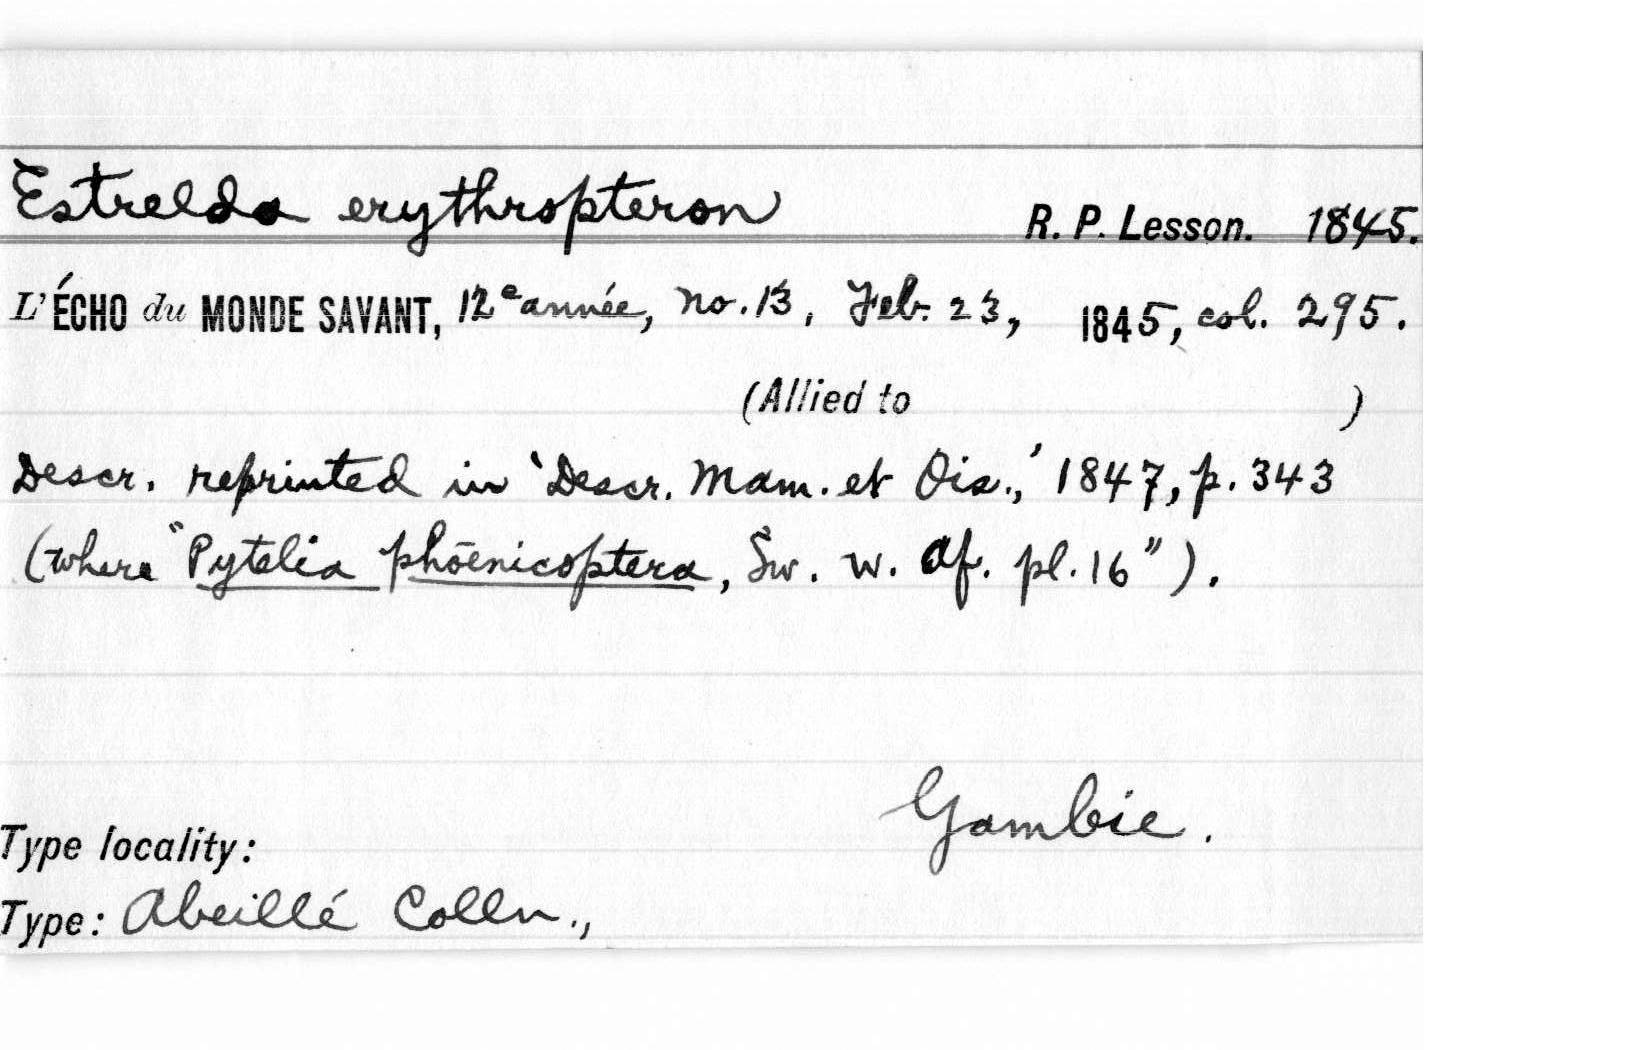 Estrelda erythropteron R. P. Lesson. 1845.
L'ÉCHO du MONDE SAVANT, 12e année, no. 13, Feb. 23, 1845, col. 295.
(Allied to )
Descr. reprinted in 'Descr. Mam. et Ois.,' 1847, p. 343
(where "Pytelia phoenicoptera, Sw. W. Af. pl. 16").
Gambie.
Type locality:
Type: Abeillé Colln.,